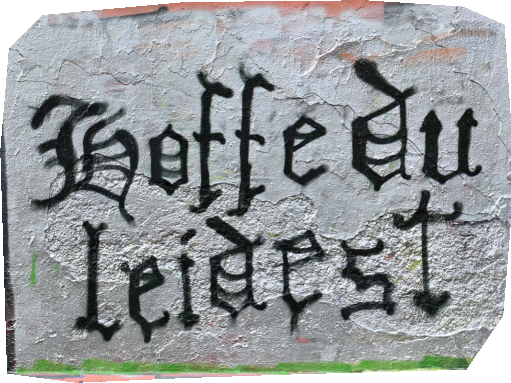 Hoffe du
leidest